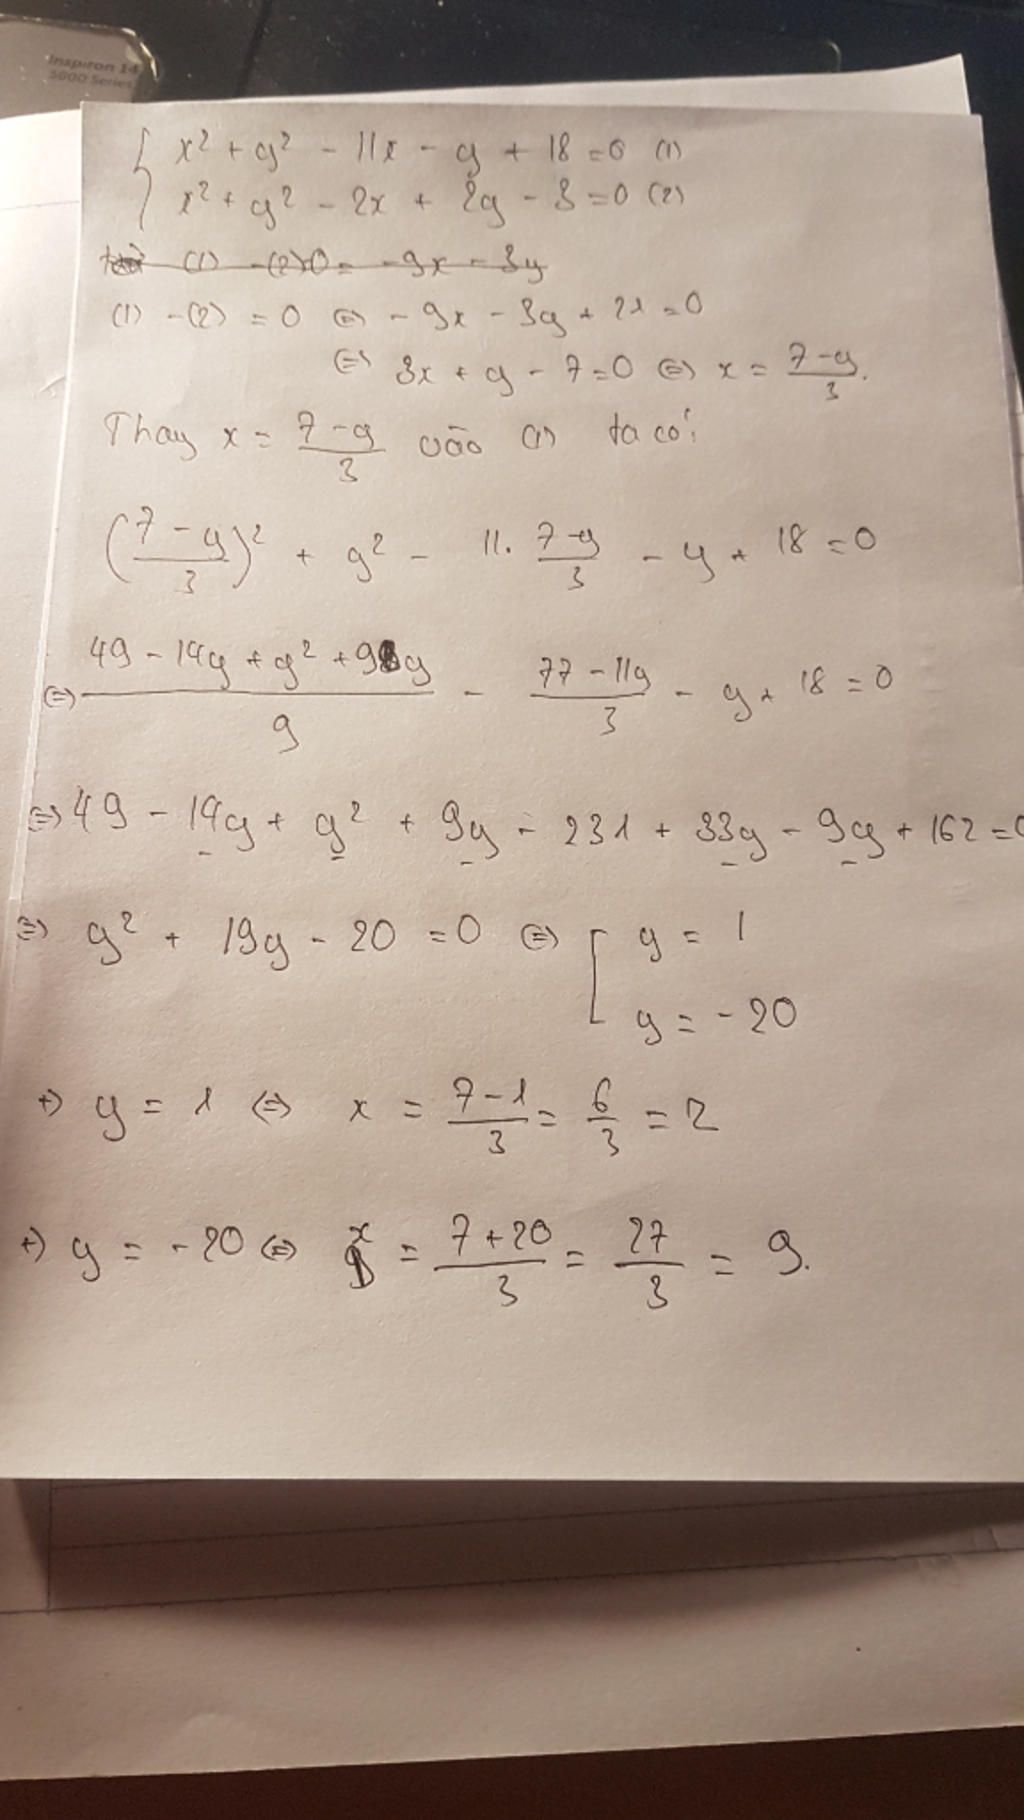 Inspiron 14
5000 Series
x² + y² - 11x - y + 18 = 0 (1)
x² + y² - 2x + 2y - 3 = 0 (2)
(1) - (2) 0 = -9x - 3y
(1) - (2) = 0 ⇔ - 9x - 3y + 21 = 0
⇔ 3x + y - 7 = 0 ⇔ x = (7 - y)/3.
Thay x = (7 - y)/3 vào (1) ta có:
((7 - y)/3)² + y² - 11. (7 - y)/3 - y + 18 = 0
⇔ (49 - 14y + y² + 9y)/9 - (77 - 11y)/3 - y + 18 = 0
⇔ 49 - 14y + y² + 9y - 231 + 33y - 9y + 162 = 0
⇔ y² + 19y - 20 = 0 ⇔ [ y = 1
y = - 20
+) y = 1 ⇔ x = (7 - 1)/3 = 6/3 = 2
+) y = - 20 ⇔ x = (7 + 20)/3 = 27/3 = 9.